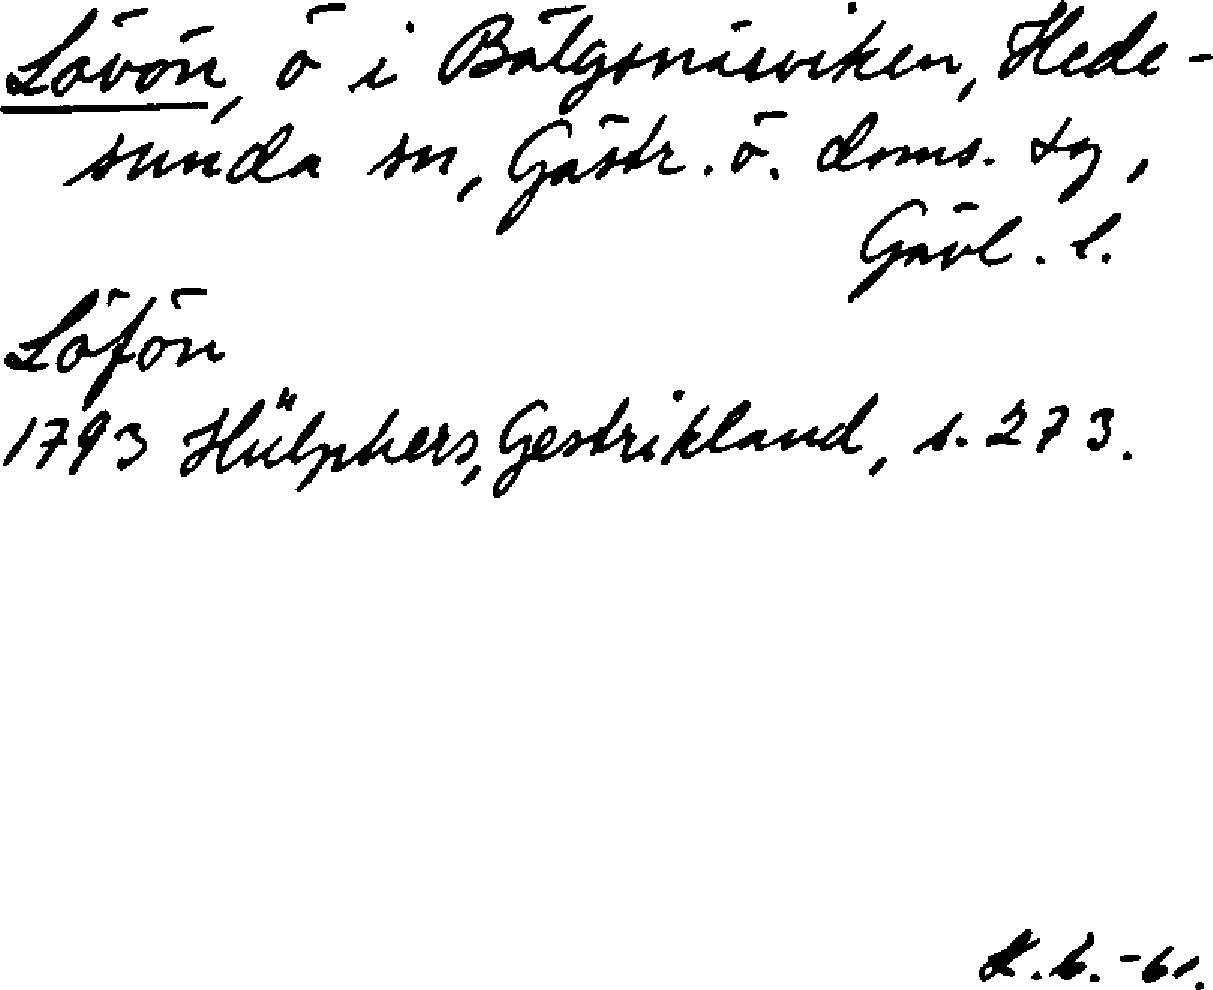 Lövön, ö i Bälgsnäsviken, Hede-
sunda sn, Gästr. ö. doms. tg,
Gävl. l.
Löfön
1793 Hülphers, Gestrikland, s. 273.
-61.